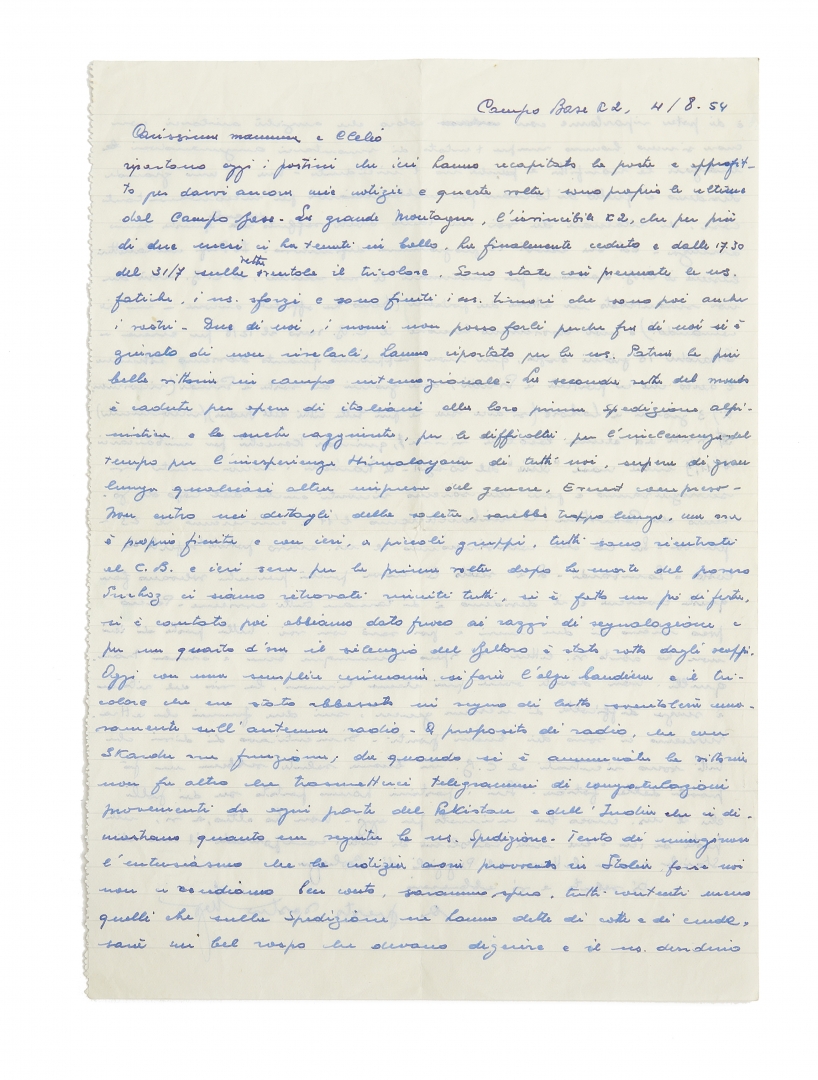 Campo Base K2, 4/8-54
Carissima mamma e Clelia
ripartono oggi i postini che ieri hanno recapitato la posta e approfit-
to per darvi ancora mie notizie e questa volta sono proprio le ultime
dal Campo base - La grande Montagna, l'invincibile K2, che per più
di due mesi ci ha tenuti in ballo, ha finalmente ceduto e dalle 17.30
del 31/7 sulla vetta sventola il tricolore. Sono state così premiate le ns.
fatiche, i ns. sforzi e sono finiti i ns. timori che sono poi anche
i vostri - Due di noi, i nomi non posso farli perche fra di noi si è
giurato di non rivelarli, hanno riportato per la ns. Patria la più
bella vittoria in campo internazionale - La seconda vetta del mondo
è caduta per opera di italiani alla loro prima spedizione alpi-
nistica e la vetta raggiunta, per le difficoltà per l'inclemenza del
tempo per l'inesperienza Himalayana di tutti noi, supera di gran
lunga qualsiasi altra impresa del genere, Everest compreso -
Non entro nei dettagli della salita, sarebbe troppo lungo, ma ora
è proprio finita e con ieri, a piccoli gruppi, tutti sono rientrati
al C.B. e ieri sera per la prima volta dopo la morte del povero
Puchoz ci siamo ritrovati riuniti tutti, si è fatto un pò di festa,
si è cantato poi abbiamo dato fuoco ai razzi di segnalazione e
per un quarto d'ora il silenzio del Baltoro è stato rotto dagli scoppi.
Oggi con una semplice cerimonia si farà l'alza bandiera e il tri-
colore che era stato abbassato in segno di lutto sventolerà nuo-
vamente sull'antenna radio - A proposito di radio, che con
Skardu ora funziona, da quando si è annunciata la vittoria
non fa altro che trasmetterci telegrammi di congratulazioni
provenienti da ogni parte del Pakistan e dell'India che ci di-
mostrano quanto era seguita la ns. Spedizione - Tento di immaginare
l'entusiasmo che la notizia avrà provocato in Italia forse noi
non ci rendiamo ben conto, saranno spero, tutti contenti meno
quelli che sulla Spedizione ne hanno dette di cotte e di crude,
sarà un bel rospo che devono digerire e il ns. desiderio